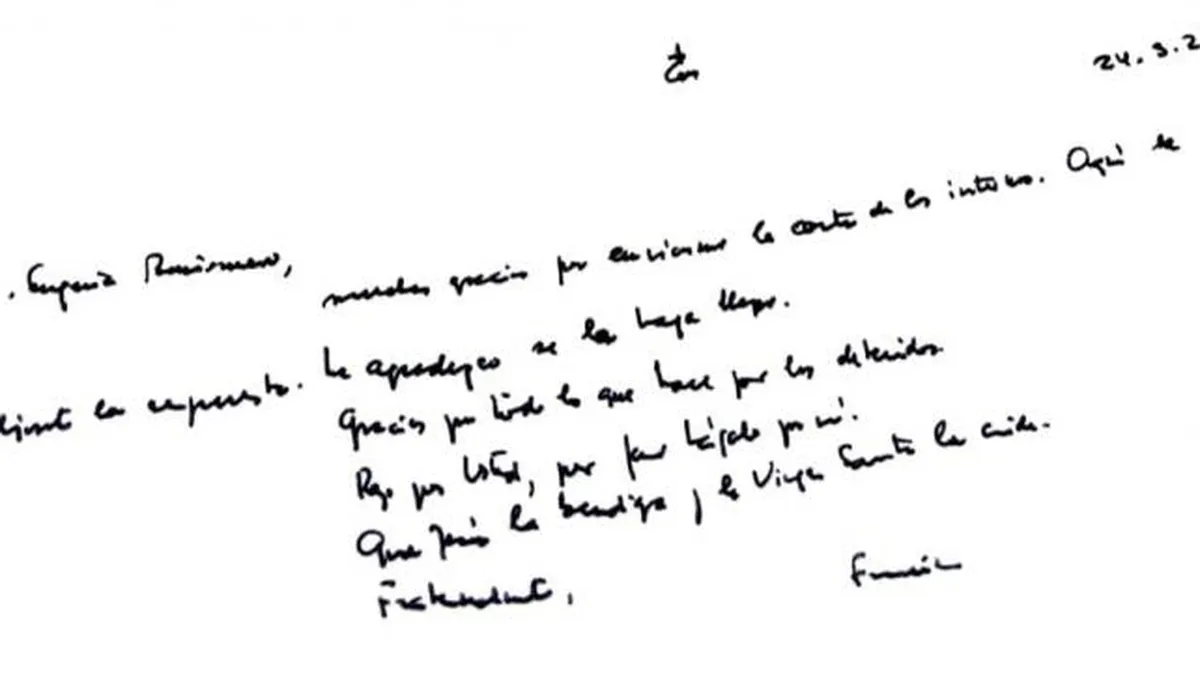 24.9.2
. Eugenia
muchas gracias por enviarme la carta de los internos. Aquí le
la respuesta. Le agradezco se la haga llegar.
Gracias por todo lo que hace por los detenidos.
Rezo por Usted, por favor hágalo por mí.
Que Jesús la bendiga y la Virgen Santa la cuide.
Fraternalmente,